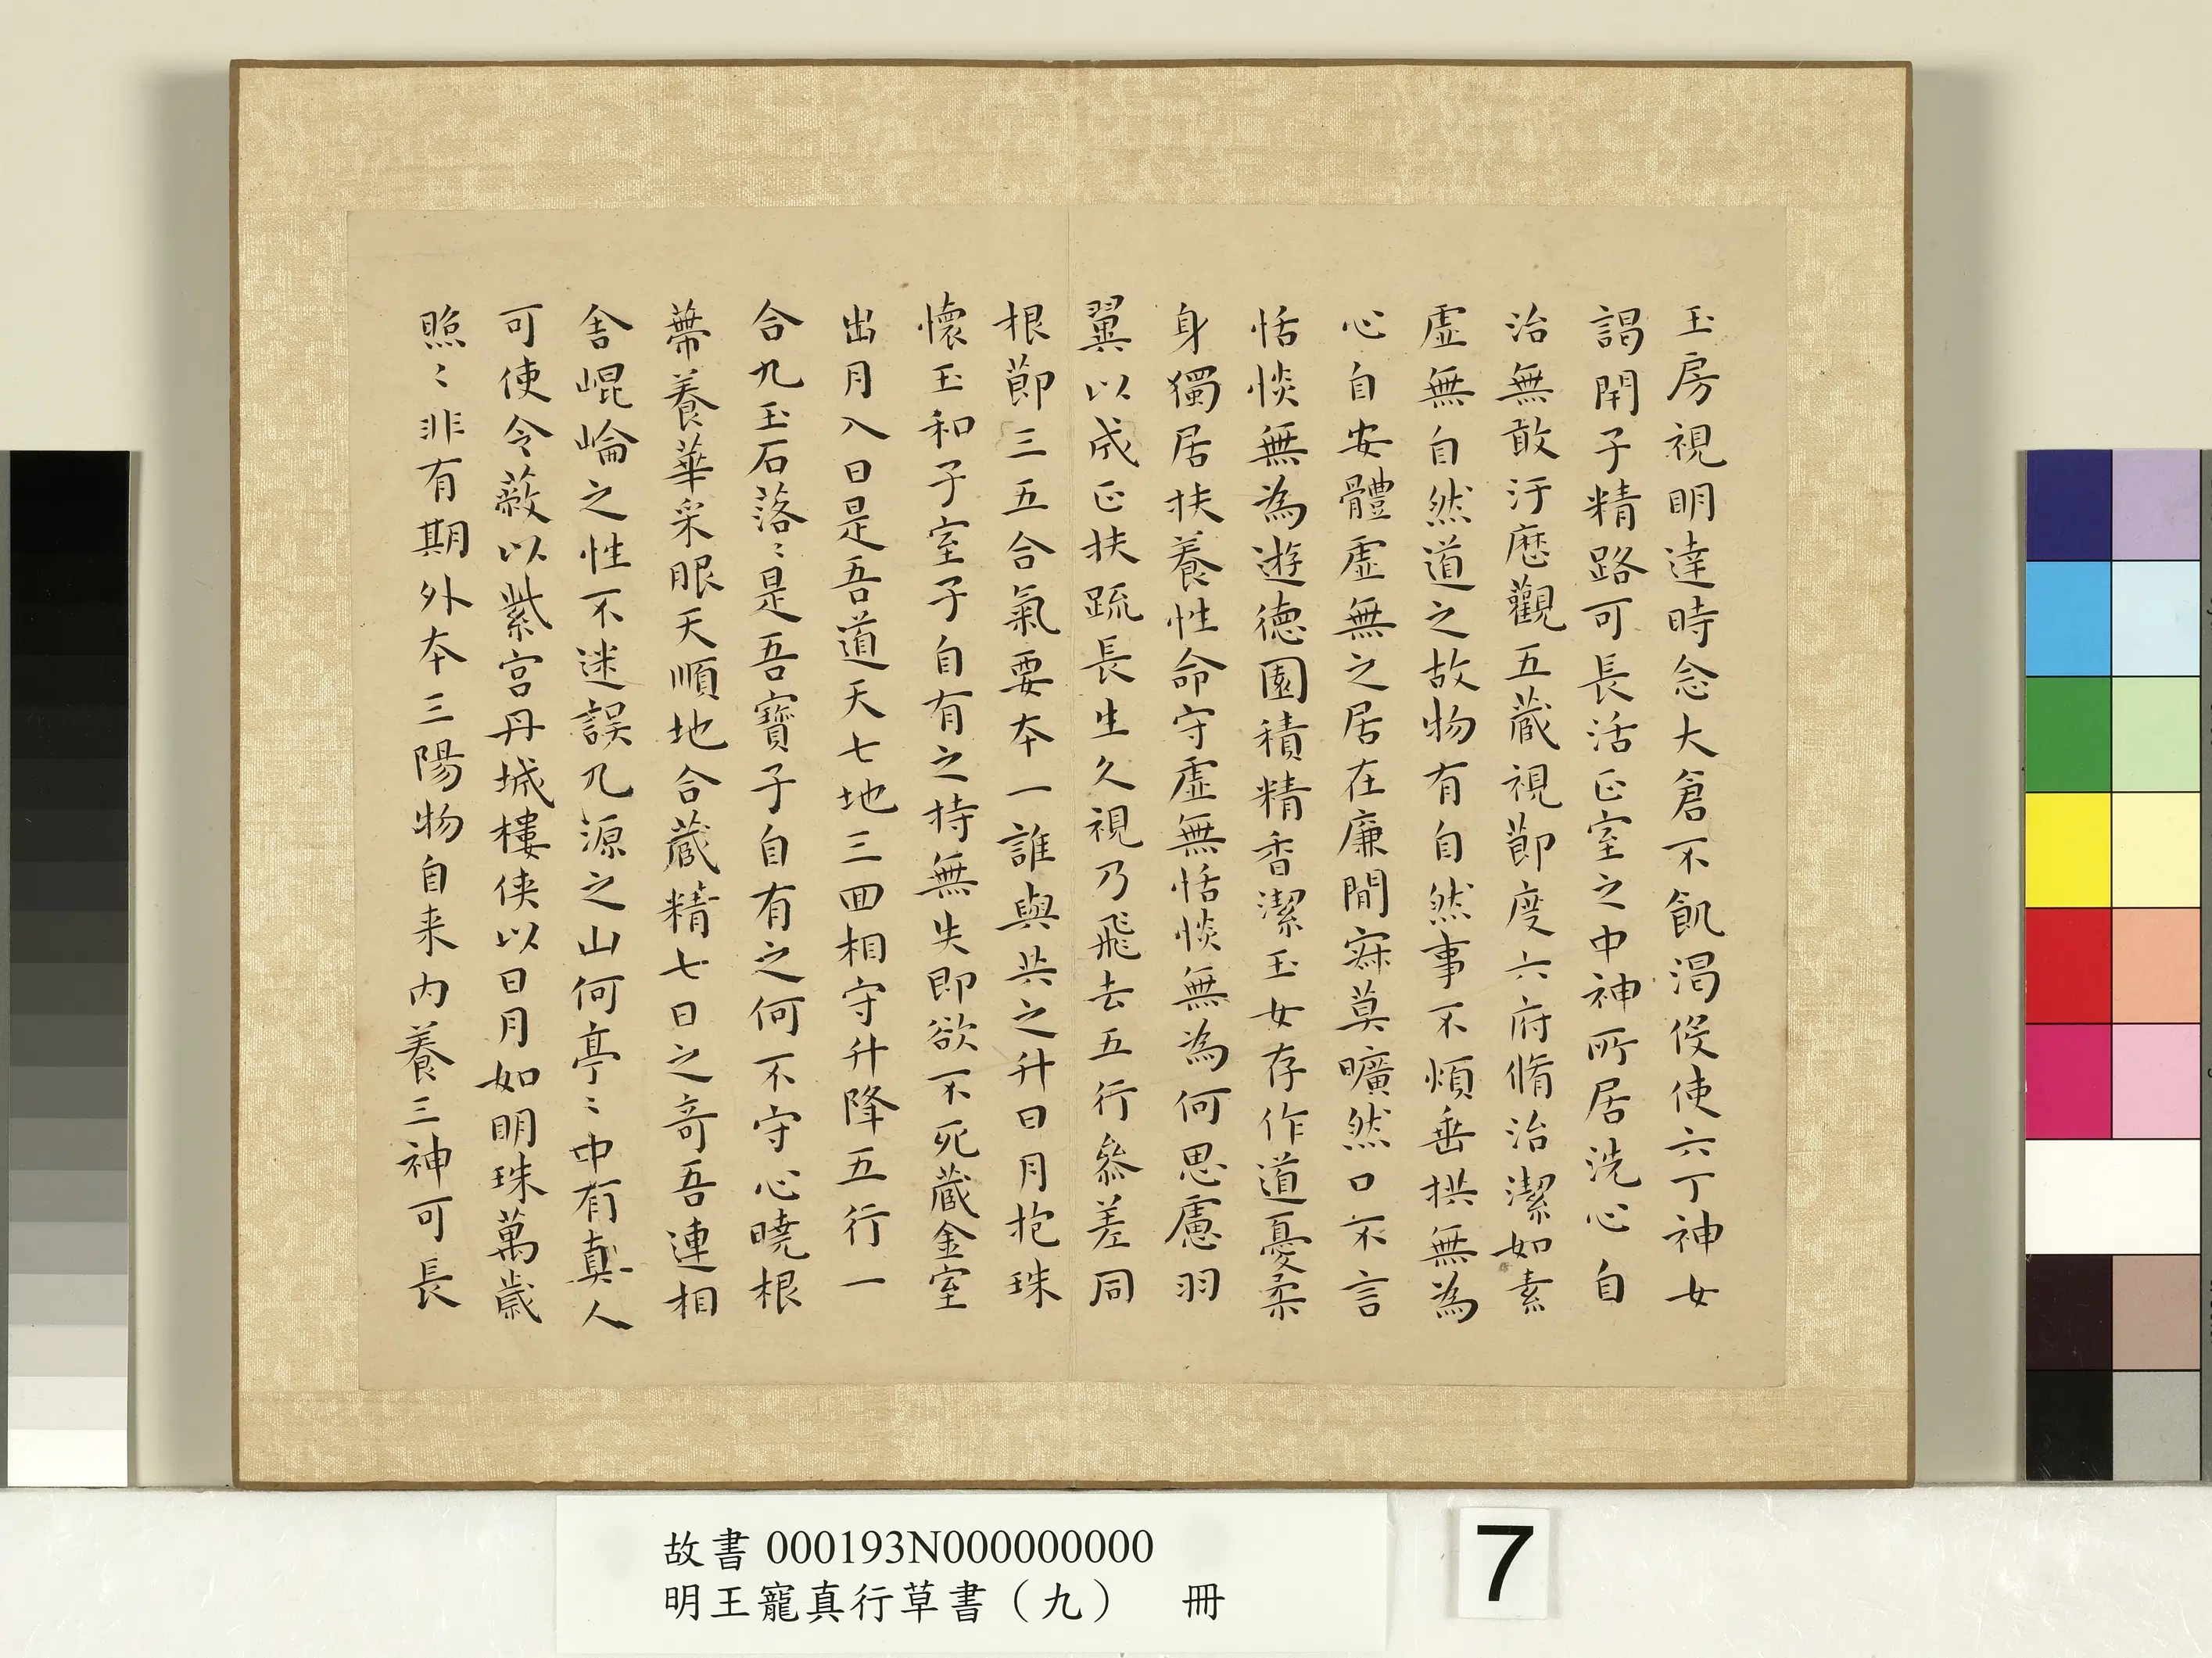 玉房視明達時念大倉不飢渴侵使六丁神女
謁閇子精路可長活正室之中神所居洗心自
治無敢汙歷觀五藏視節度六府脩治潔如素
虛無自然道之故物有自然事不煩垂拱無為
心自安體虛無之居在廉間寂莫曠然口不言
恬惔無為遊德園積精香潔玉女存作道憂柔
身獨居扶養性命守虛無恬惔無為何思慮羽
翼以成正扶疏長生久視乃飛去五行參差同
根節三五合氣要本一誰與共之升日月抱珠
懷玉和子室子自有之持無失即欲不死藏金室
出月入日是吾道天七地三回相守升降五行一
合九玉石落〻是吾寶子自有之何不守心曉根
蔕養華采服天順地合藏精七日之奇吾連相
舍崐崘之性不迷誤九源之山何亭〻中有真人
可使令蔽以紫宮丹城樓俠以日月如明珠萬歲
照〻非有期外本三陽物自来內養三神可長
故書 000193N000000000
明王寵真行草書（九） 冊
7